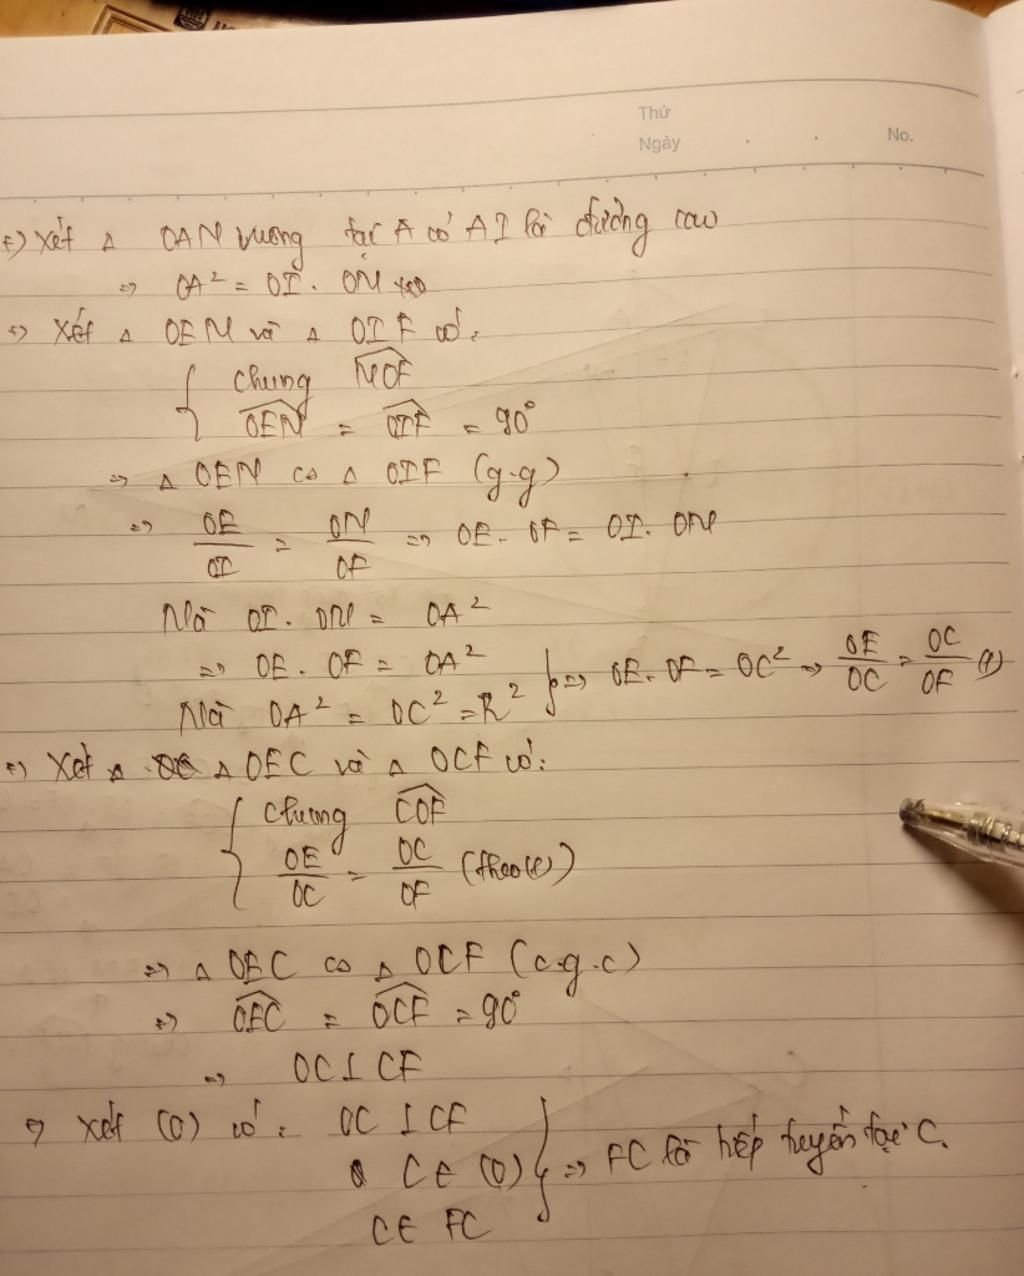 Thứ
Ngày
No.
+) Xét Δ OAM vuông tại A có AI là đường cao
=> OA² = OI. OM
+) Xét Δ OEM và Δ OIF có:
chung MOF
OEM = OIF = 90°
=> Δ OEM ∽ Δ OIF (g.g)
=> OE/OI = OM/OF => OE. OF = OI. OM
Mà OI. OM = OA²
=> OE. OF = OA²
Mà OA² = OC² = R² } => OE. OF = OC² => OE/OC = OC/OF (1)
+) Xét Δ OEC và Δ OCF có:
chung COF
OE/OC = OC/OF (theo(1))
=> Δ OEC ∽ Δ OCF (c.g.c)
=> OEC = OCF = 90°
=> OC ⊥ CF
+) Xét (O) có: OC ⊥ CF
C ∈ (O) } => FC là tiếp tuyến tại C.
C ∈ FC